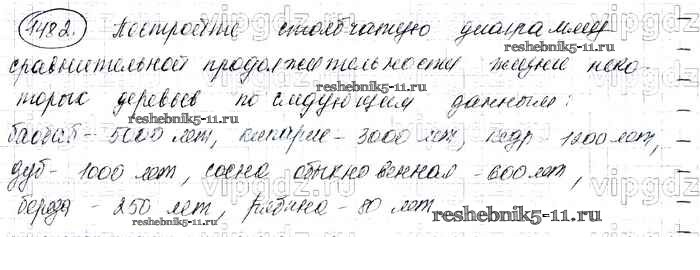 1482. Постройте столбчатую диаграмму
сравнительной продолжительности жизни неко-
торых деревьев по следующим данным:
баобаб - 5000 лет, кипарис - 3000 лет, кедр - 1200 лет,
дуб - 1000 лет, сосна обыкновенная - 600 лет,
береза - 250 лет, рябина - 80 лет
reshebnik5-11.ru
reshebnik5-11.ru
reshebnik5-11.ru
vipgdz
vipgdz.ru
vipgdz